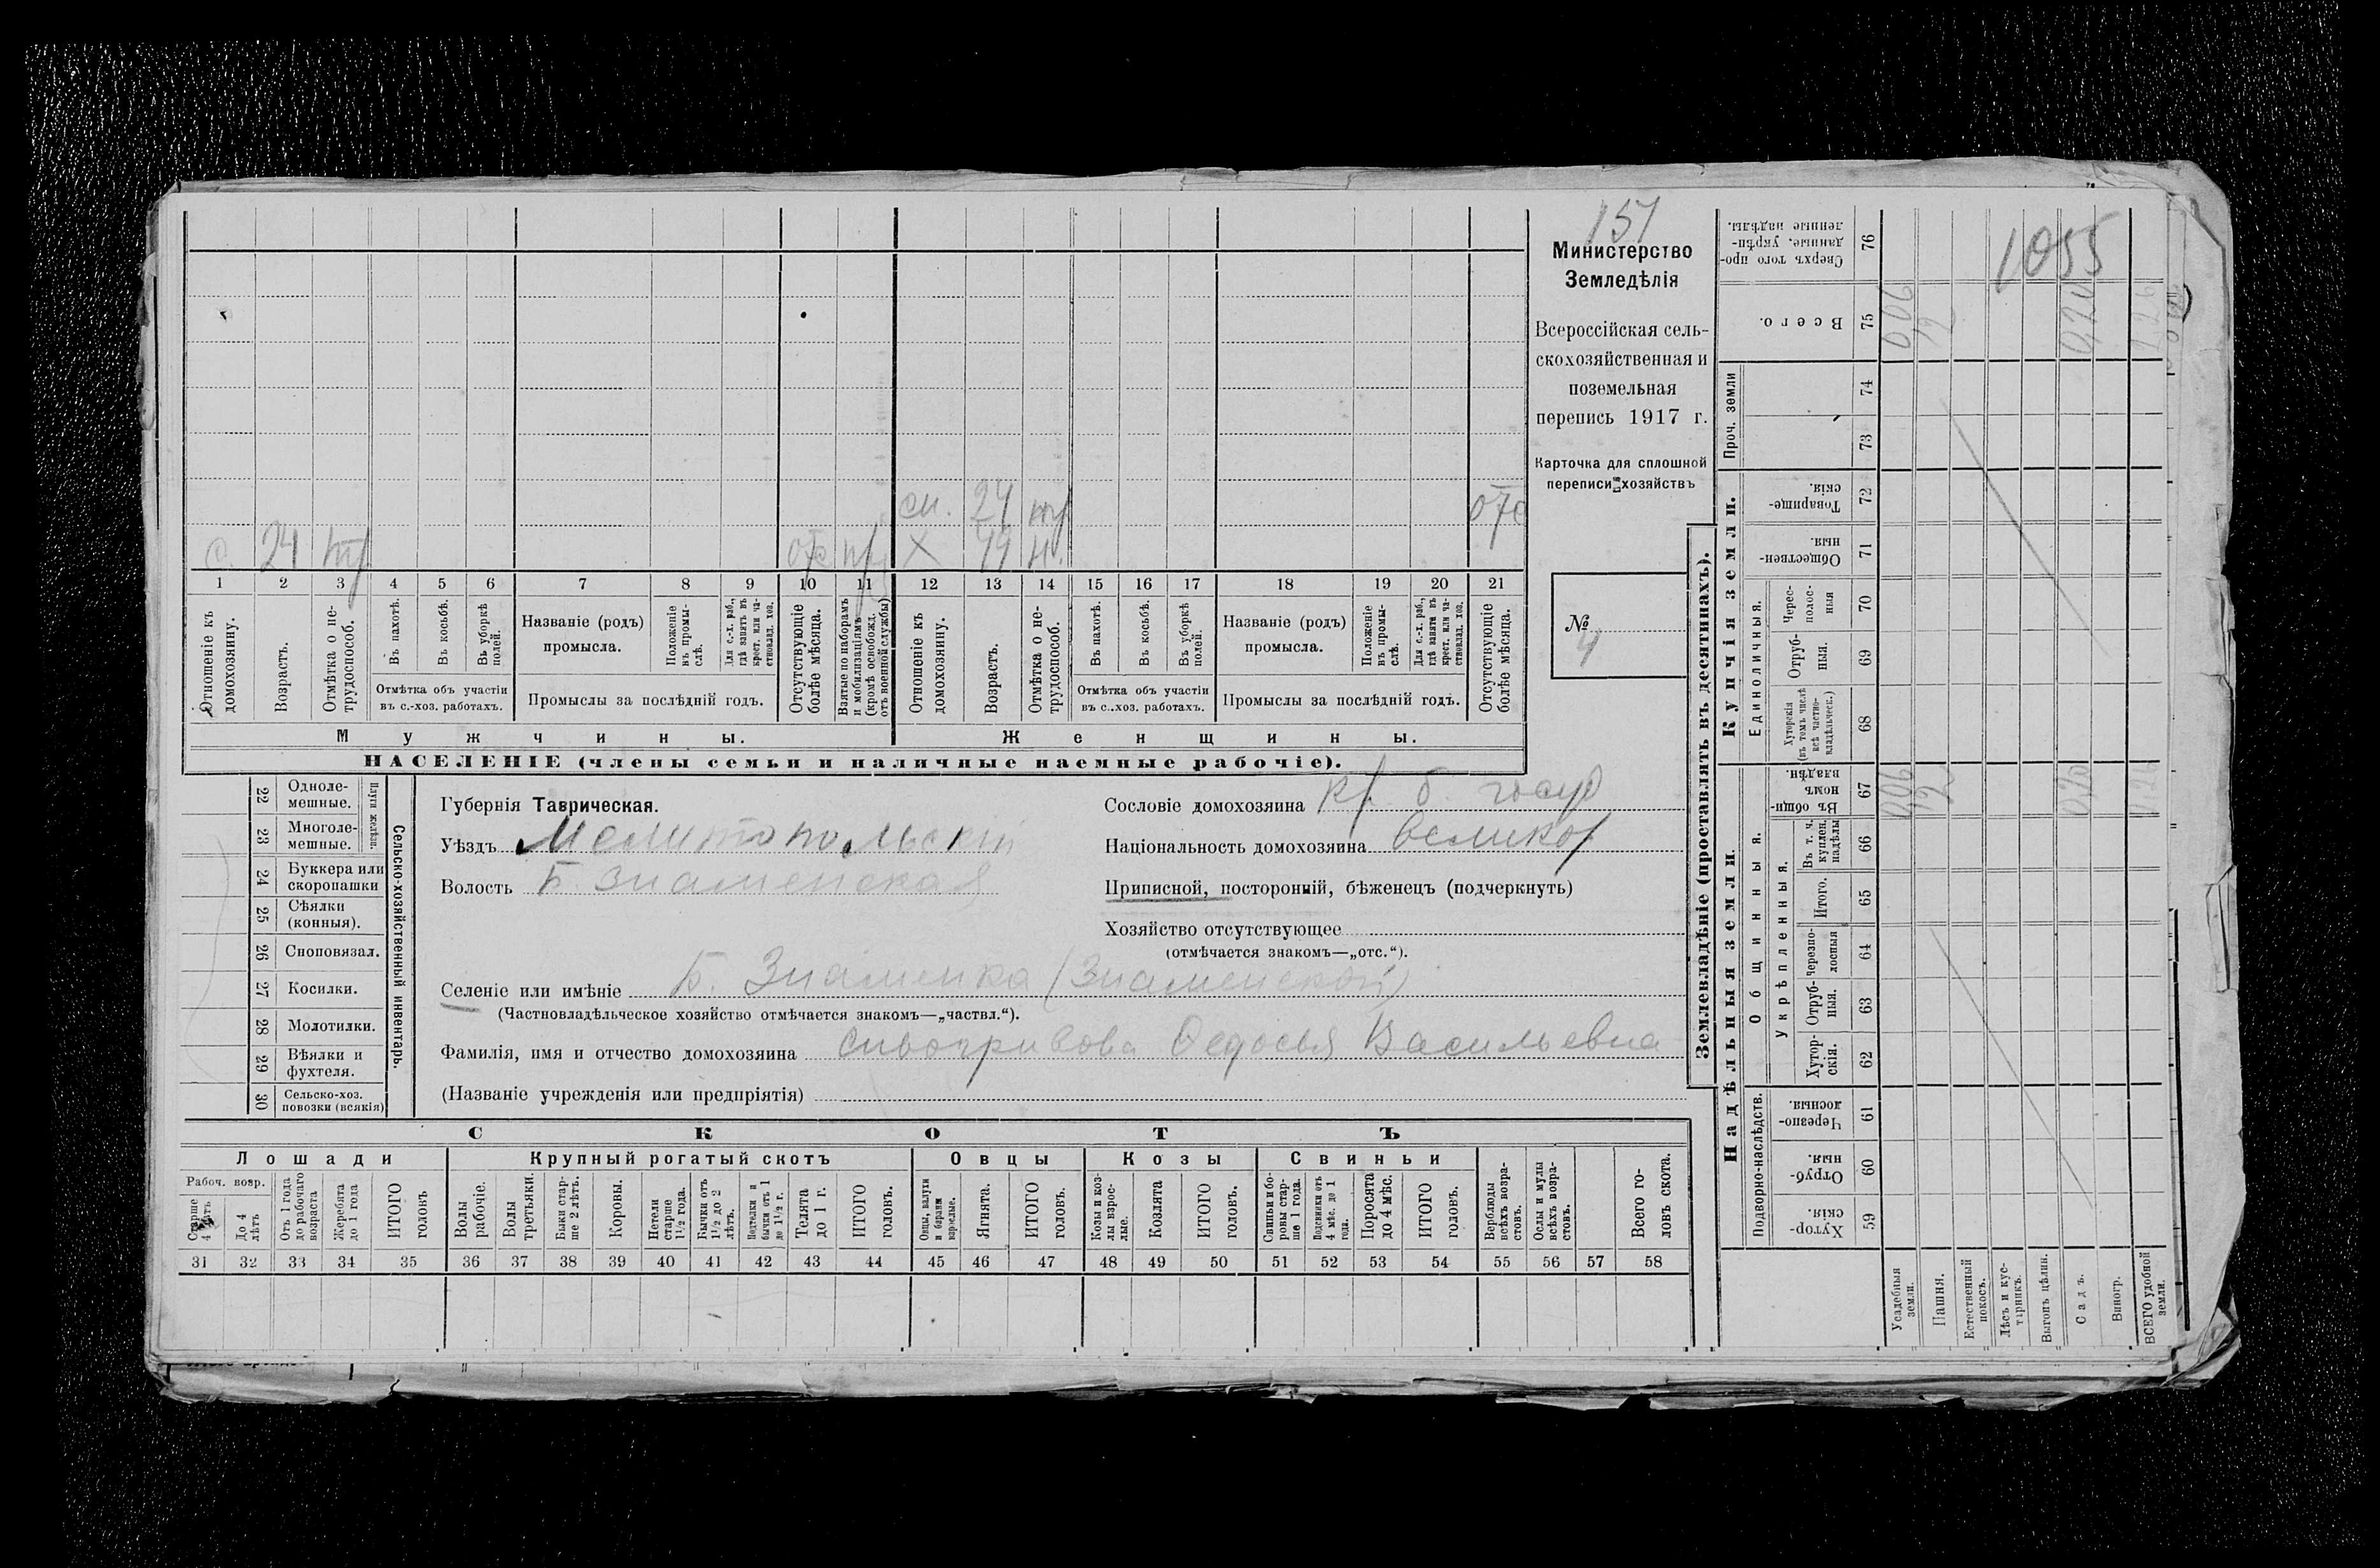 151
Министерство
Земледѣлія
Всероссійская сель-
скохозяйственная и
поземельная
перепись 1917 г.
Карточка для сплошной
переписи хозяйствъ
№
4
см. 24 тр отс
с. 24 тр отс пр Х 49 н.
1 2 3 4 5 6 7 8 9 10 11 12 13 14 15 16 17 18 19 20 21
Отношеніе къ домохозяину.
Возрастъ.
Отмѣтка о не-трудоспособ.
Въ пахотѣ.
Въ косьбѣ.
Въ уборкѣ полей.
Отмѣтка объ участіи
въ с.-хоз. работахъ.
Названіе (родъ)
промысла.
Положеніе въ промы-слѣ.
Для с.-х. раб., гдѣ занятъ въ крест. или ча-стновлад. хоз.
Промыслы за послѣдній годъ.
Отсутствующіе болѣе мѣсяца.
Взятые по наборамъ и мобилизаціямъ (кромѣ освобожд. отъ военной службы)
Отношеніе къ домохозяину.
Возрастъ.
Отмѣтка о не-трудоспособ.
Въ пахотѣ.
Въ косьбѣ.
Въ уборкѣ полей.
Отмѣтка объ участіи
въ с.-хоз. работахъ.
Названіе (родъ)
промысла.
Положеніе въ промы-слѣ.
Для с.-х. раб., гдѣ заняты въ крест. или ча-стновлад. хоз.
Промыслы за послѣдній годъ.
Отсутствующіе болѣе мѣсяца.
Мужчины. Женщины.
НАСЕЛЕНІЕ (члены семьи и наличные наемные рабочіе).
22 Однолемешные.
23 Многолемешные.
Плуги желѣзн.
24 Буккера или скоропашки
25 Сѣялки (конныя).
26 Сноповязал.
27 Косилки.
28 Молотилки.
29 Вѣялки и фухтеля.
30 Сельско-хоз. повозки (всякія)
Сельско-хозяйственный инвентарь.
Губернія Таврическая.
Уѣздъ Мелитопольскій
Волость Б. Знаменская
Сословіе домохозяина кр. б. госуд
Національность домохозяина великор
Приписной, посторонній, бѣженецъ (подчеркнуть)
Хозяйство отсутствующее
(отмѣчается знакомъ—„отс.“).
Селеніе или имѣніе Б. Знаменка (Знаменской)
(Частновладѣльческое хозяйство отмѣчается знакомъ—„частвл.“).
Фамилія, имя и отчество домохозяина Сивогривова Федосья Васильевна
(Названіе учрежденія или предпріятія)
СКОТЪ
Лошади Крупный рогатый скотъ Овцы Козы Свиньи
Рабоч. возр.
Старше 4 лѣтъ
До 4 лѣтъ
Отъ 1 года до рабочаго возраста
Жеребята до 1 года
ИТОГО головъ
Волы рабочіе.
Волы третьяки.
Быки стар-ше 2 лѣтъ.
Коровы.
Нетели старше 1½ года.
Бычки отъ 1½ до 2 лѣтъ.
Нетелки и бычки отъ 1 до 1½ г.
Телята до 1 г.
ИТОГО головъ.
Овцы, валухи и бараны взрослые.
Ягнята.
ИТОГО головъ.
Козы и коз-лы взрос-лые.
Козлята
ИТОГО головъ.
Свиньи и бо-ровы стар-ше 1 года.
Подсвинки отъ 4 мѣс. до 1 года.
Поросята до 4 мѣс.
ИТОГО головъ.
Верблюды всѣхъ возра-стовъ.
Ослы и мулы всѣхъ возра-стовъ.
Всего го-ловъ скота.
31 32 33 34 35 36 37 38 39 40 41 42 43 44 45 46 47 48 49 50 51 52 53 54 55 56 57 58
Землевладѣніе (проставлять въ десятинахъ).
Надѣльныя земли. Купчія земли. Проч. земли
Подворно-наслѣдств.
Общинныя.
Укрѣпленныя.
Единоличныя.
Хутор-скія. 59
Отруб-ныя. 60
Черезпо-лосныя. 61
Хутор-скія. 62
Отруб-ныя. 63
Черезпо-лосныя 64
Итого. 65
Въ т. ч. куплен. надѣлы 66
Въ общин-номъ владѣн. 67
Хуторскія (въ томъ числѣ всѣ частно-владѣльческ.) 68
Отруб-ныя. 69
Черес-полос-ныя 70
Обществен-ныя. 71
Товарище-скія. 72
73
74
Всего. 75
Сверхъ того про-данные, укрѣп-ленные надѣлы. 76
1055
Усадебныя земли. 0,06 0,06
Пашня. 12 12
Естественный покосъ.
Лѣсъ и кус-тарникъ.
Выгонъ цѣлин.
Садъ. 0,20 0,20
Виногр.
ВСЕГО удобной земли.